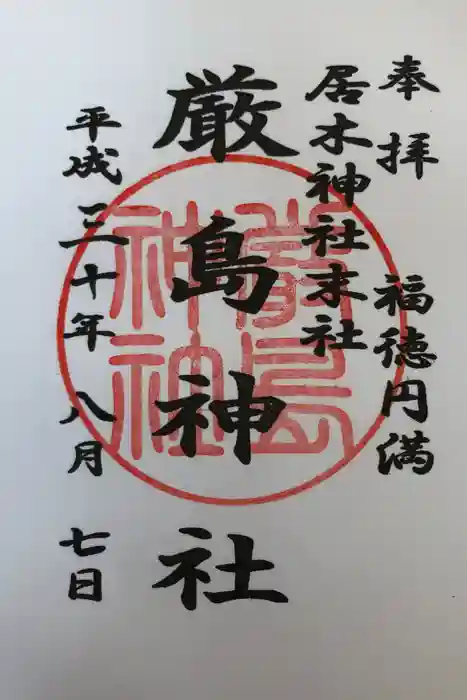 奉拝　福徳円満
居木神社末社
厳島神社
平成三十年　八月　七日
嚴島
神社